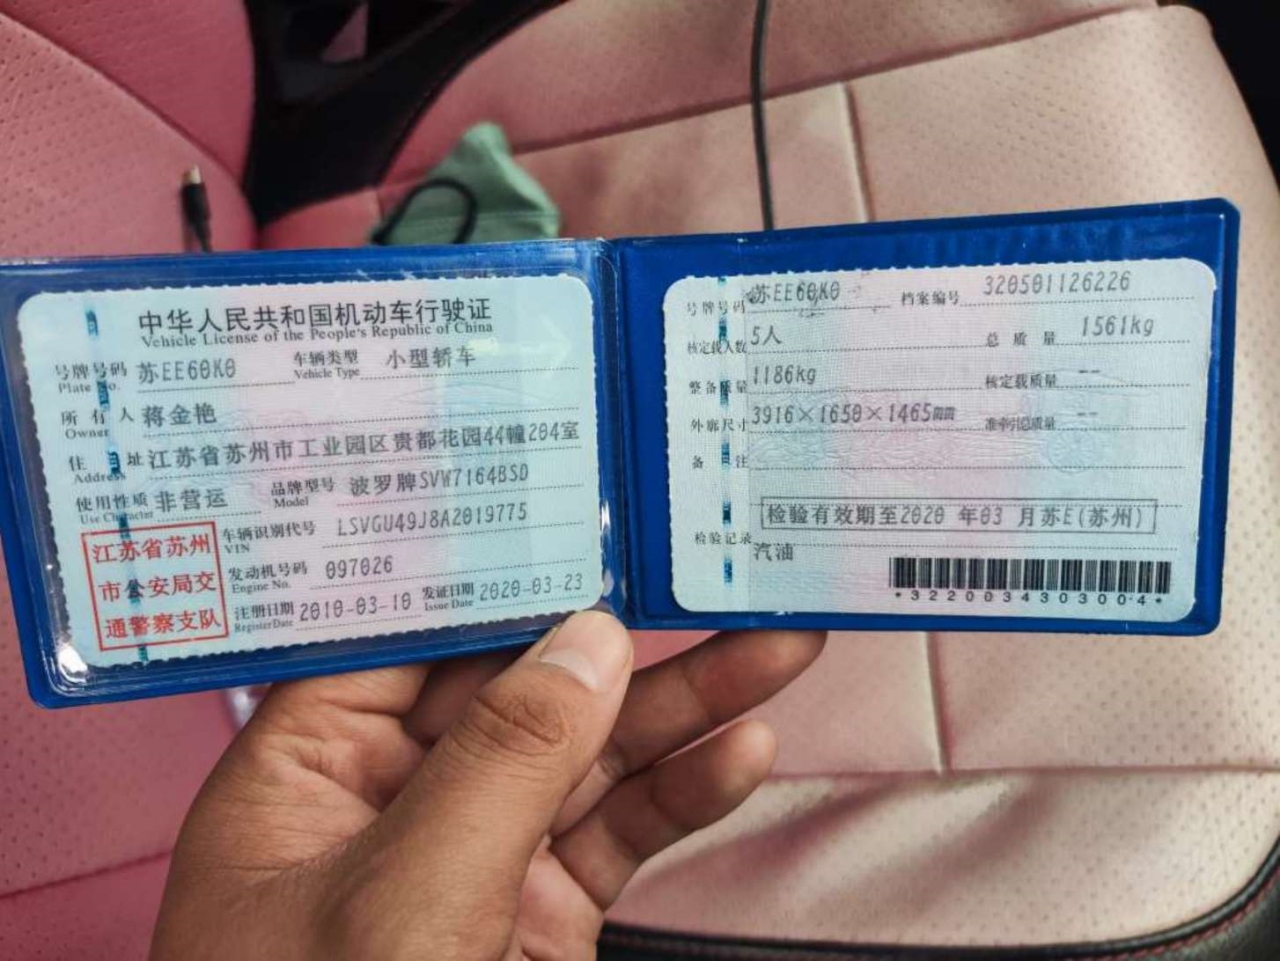 中华人民共和国机动车行驶证
Vehicle License of the People's Republic of China
号牌号码 苏EE60K0 车辆类型 小型轿车
Plate No. Vehicle Type
所有人 蒋金艳
Owner
住址 江苏省苏州市工业园区贵都花园44幢204室
Address
使用性质 非营运 品牌型号 波罗牌SVW7164BSD
Use Character Model
江苏省苏州
市公安局交
通警察支队
车辆识别代号 LSVGU49J8A2019775
VIN
发动机号码 097026
Engine No.
注册日期 2010-03-10 发证日期 2020-03-23
Register Date Issue Date
号牌号码 苏EE60K0 档案编号 320501126226
核定载人数 5人 总质量 1561kg
整备质量 1186kg 核定载质量 --
外廓尺寸 3916×1650×1465mm 准牵引总质量 --
备注
检验有效期至2020 年03 月苏E(苏州)
检验记录
汽油
*3220034303004*